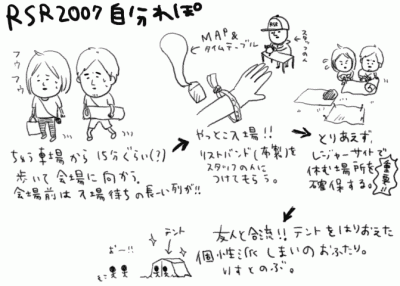 RSR2007 自分れぽ。
フウ
フウ
MAP&
タイムテーブル
RSR
スタッフの人
ちゅう車場から 15分ぐらい(?)
歩いて会場に向かう。
会場前は入場待ちの長ーい列が!!
やっとこ入場!!
リストバンド(布製)を
スタッフの人に
つけてもらう。
とりあえず、
レジャーサイトで
休む場所を
確保する。
重要!!
友人と合流!! テントをはりおえた
個性派しまいのおふたり。
りすとのぶ。
テント
おー!!